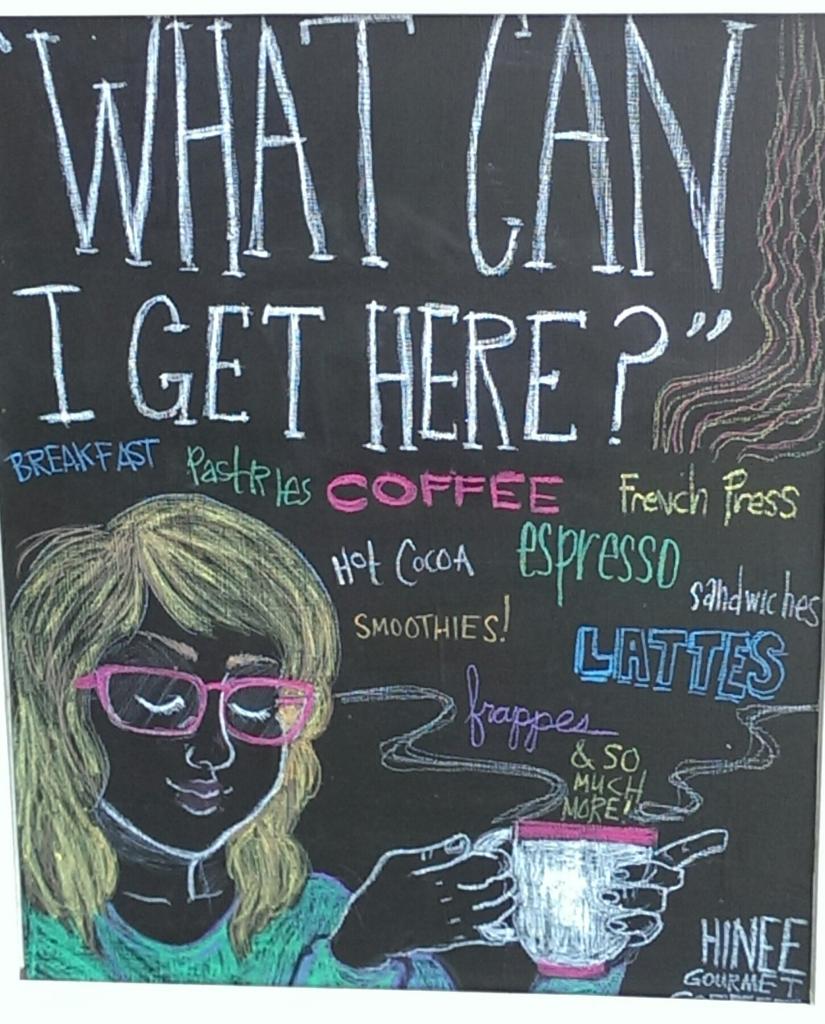 "WHAT CAN
I GET HERE?"
BREAKFAST PastRies COFFEE French Press
Hot Cocoa espresso sandwiches
SMOOTHIES! LATTES
frappes
& SO
MUCH
MORE!
HINEE
GOURMET